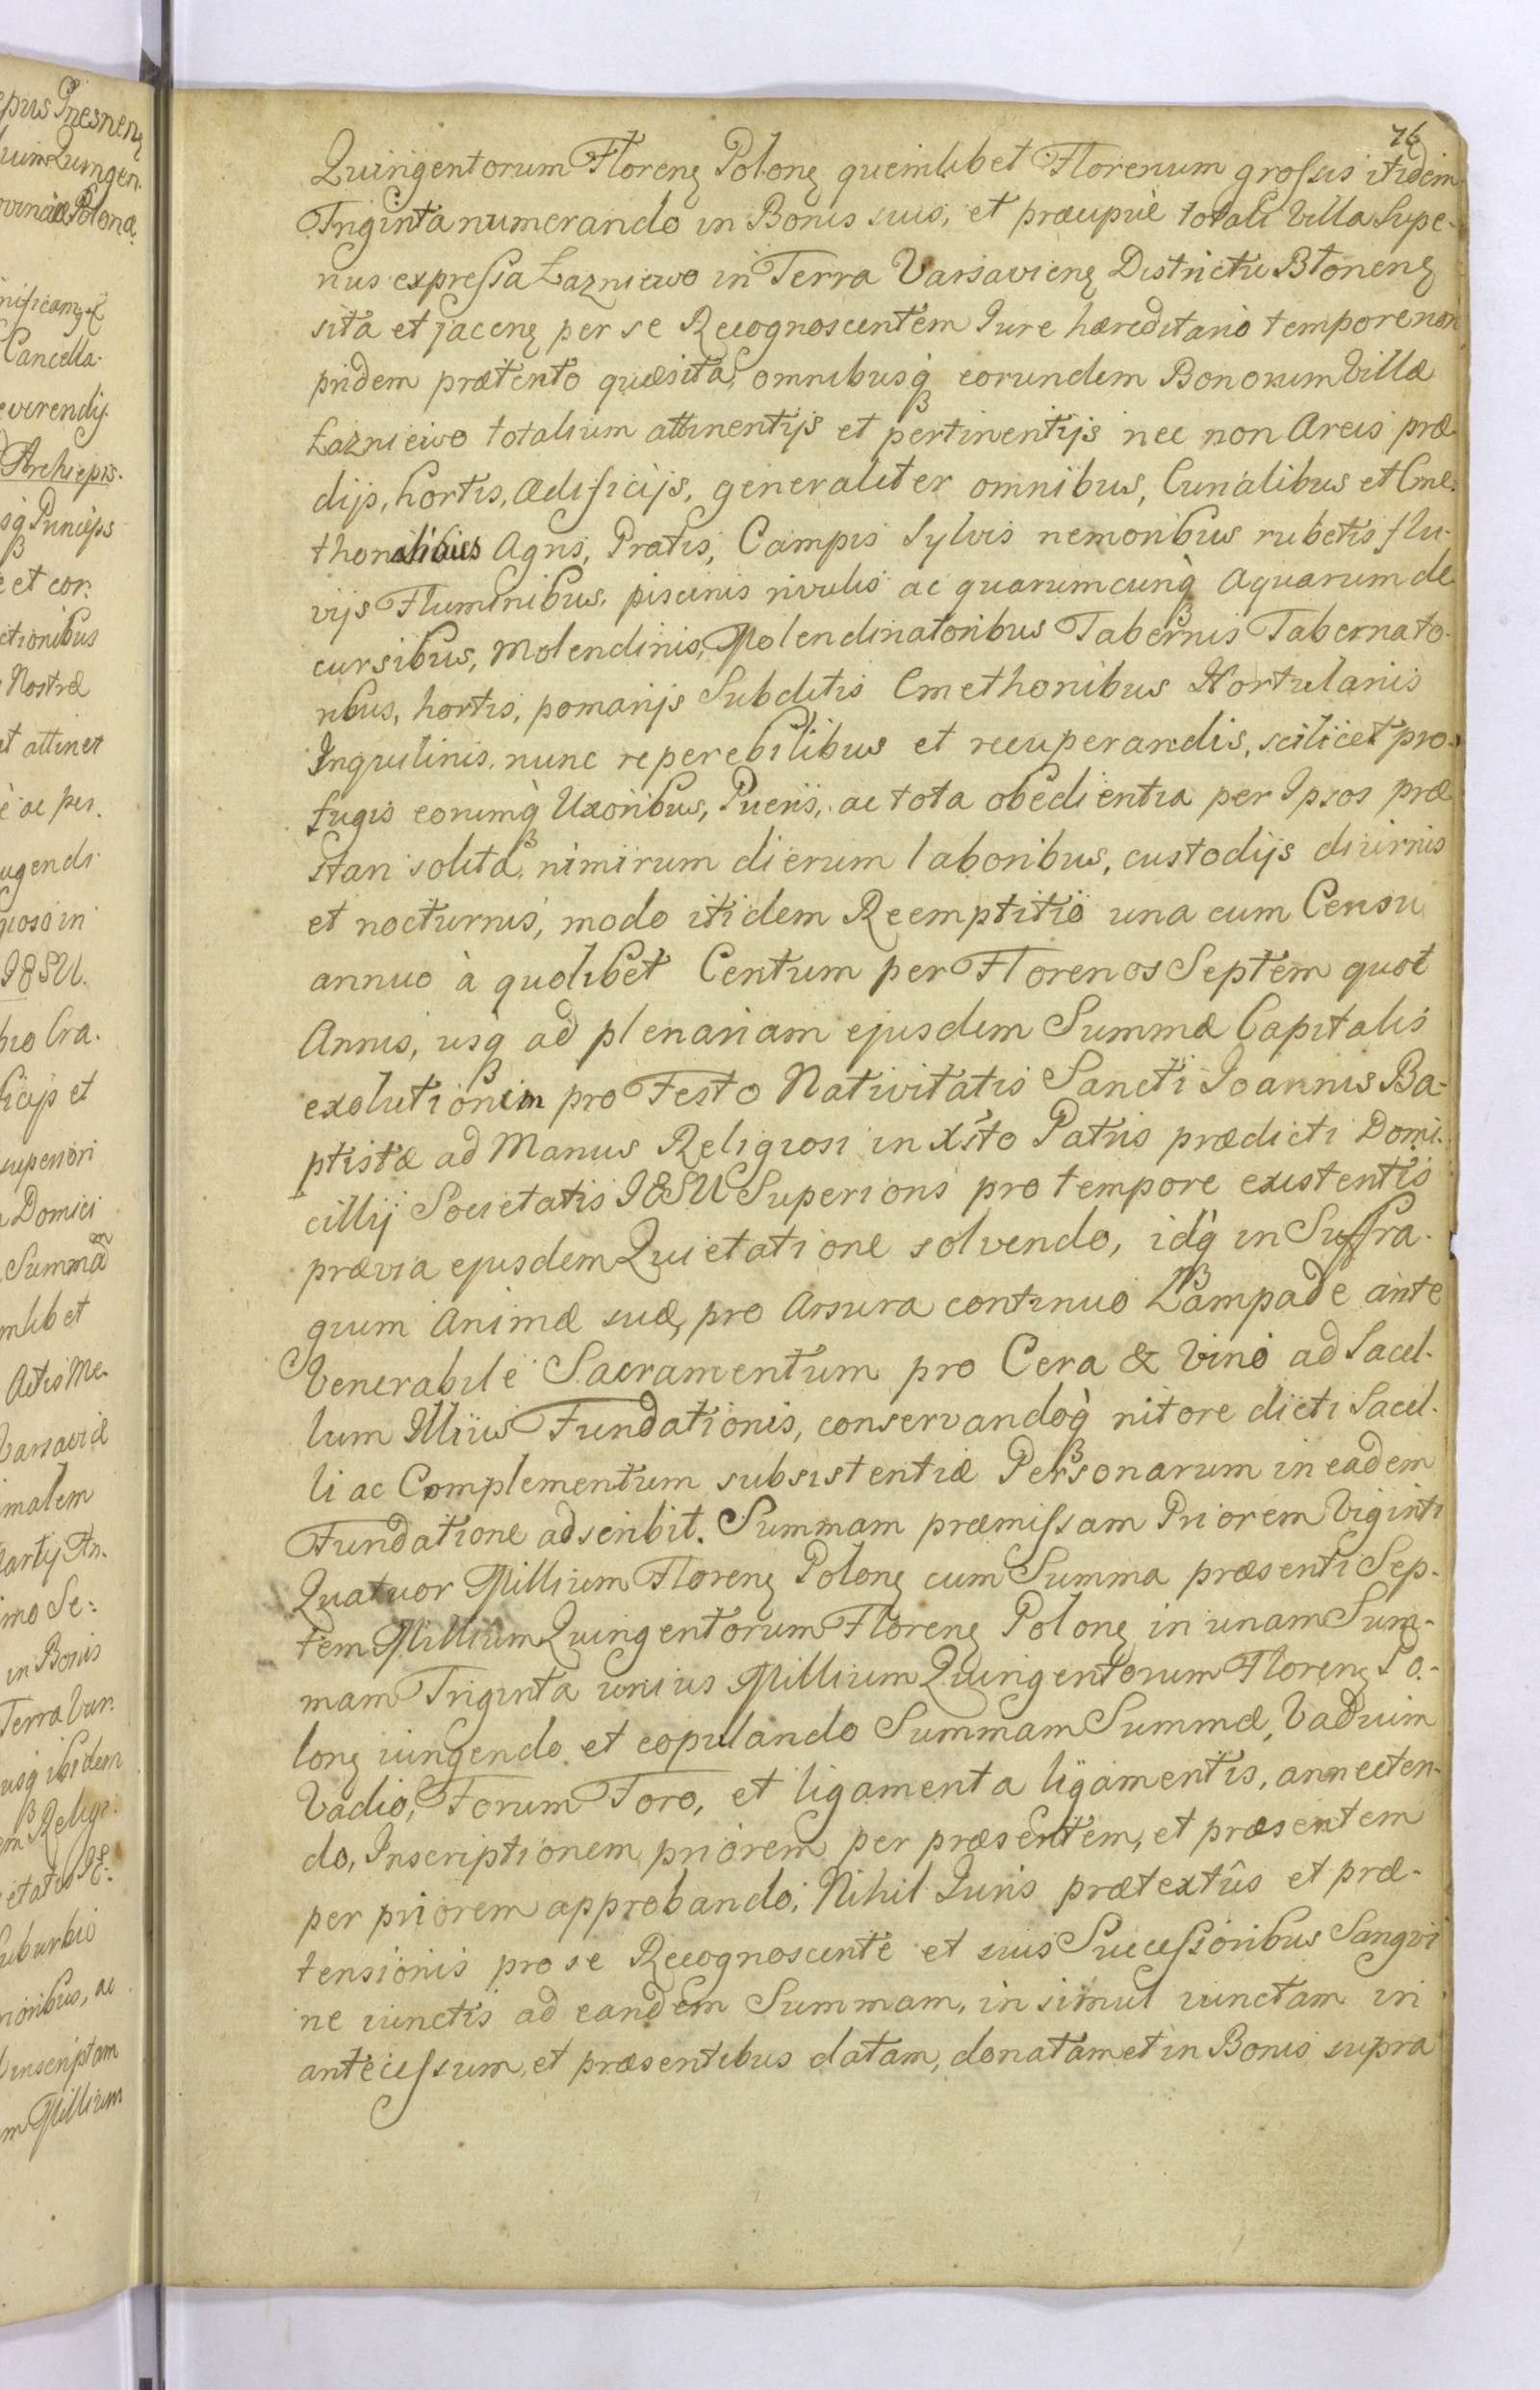 76
Quingentorum Florenę Polonę quemlibet Florenum grossis itidem
Triginta numerando in Bonis suis, et præcipuè totali Villa Supe-
rius expressa Łazniewo in Terra Varsavienę Districtu Błonenę
sita et jacenę per se Recognoscentem Iure hæreditario tempore non
pridem prætento quæsita, omnibusq̀ß eorundem Bonorum Villæ
Łazniewo totalium attinentijs et pertinentijs nec non Areis præ
dijs, hortis, ædificijs, generaliter omnibus, Curialibus et Cme-
thonalibus Agris, Pratis, Campis Sylvis nemoribus rubetis flu-
vijs Fluminibus, piscinis rivulis ac quarumcunq̀ß aquarum de
cursibus, molendinis, Molendinatoribus Tabernis Tabernato-
ribus, hortis, pomarijs Subditis Cmethonibus Hortulanis
Inquilinis, nunc reperebilibus et recuperandis, scilicet pro-
fugis eorumq̀ß Uxoribus, Pueris, ac tota obedientia per Ipsos præ
stari solita, nimirum dierum laboribus, custodijs diurnis
et nocturnis, modo itidem Reemptitio una cum Censu
annuo à quolibet Centum per Florenos Septem quot
Annis, usqß ad plenariam ejusdem Summæ Capitalis
exolutionem pro Festo Nativitatis Sancti Joannis Ba-
ptistæ ad Manus Religiosi in Xs̃to Patris prædicti Domi-
cillij Societatis IESU Superioris pro tempore existentis
prævia ejusdem Quietatione solvendo, idq̀ß in Suffra-
gium Animæ suæ, pro Arsura continuo Lampade ante
Venerabile Sacramentum pro Cera & Vino ad Sacel-
lum Illius Fundationis, conservandoq̀ß nitore dicti Sacel-
li ac Complementum subsistentiæ Personarum in eadem
Fundatione adscribit. Summam præmissam Priorem Viginti
Quatuor Millium Florenę Polonę cum Summa præsenti Sep-
tem Millium Quingentorum Florenę Polonę in unam Sum-
mam Triginta unius Millium Quingentorum Florenę Po-
lonę iungendo et copulando Summam Summæ, Vadium
Vadio, Forum Foro, et ligamenta ligamentis, annecten-
do, Inscriptionem priorem per præsentem, et præsentem
per priorem approbando, Nihil Iuris prætextûs et præ-
tensionis pro se Recognoscente et suis Successoribus Sangvi
ne iunctis ad eandem Summam, in simul iunctam in
antecessum, et præsentibus datam, donatam et in Bonis supra